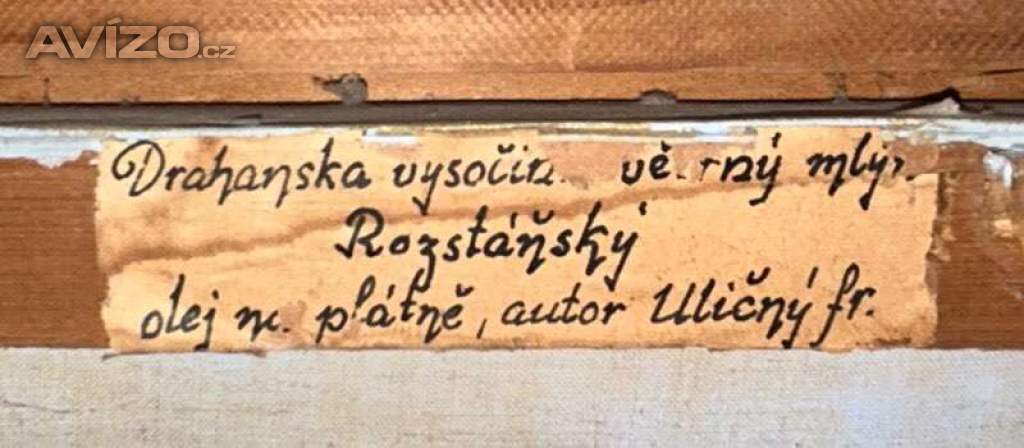 AVÍZO.cz
Drahanska vysočin vě rný mlýn
Rozstáňský
olej n. plátně, autor Uličný fr.